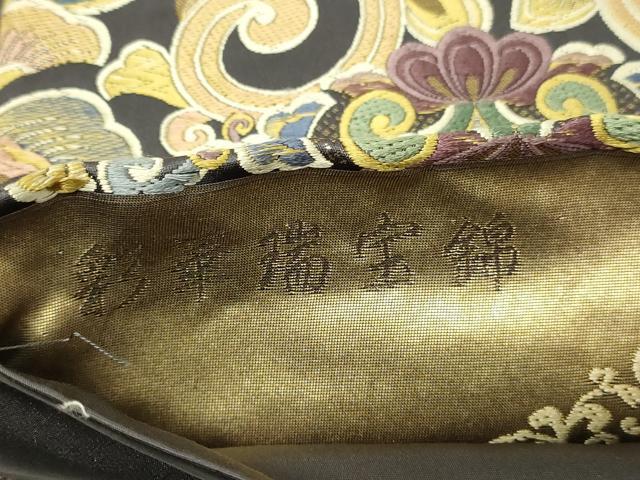 彩華瑞宝錦